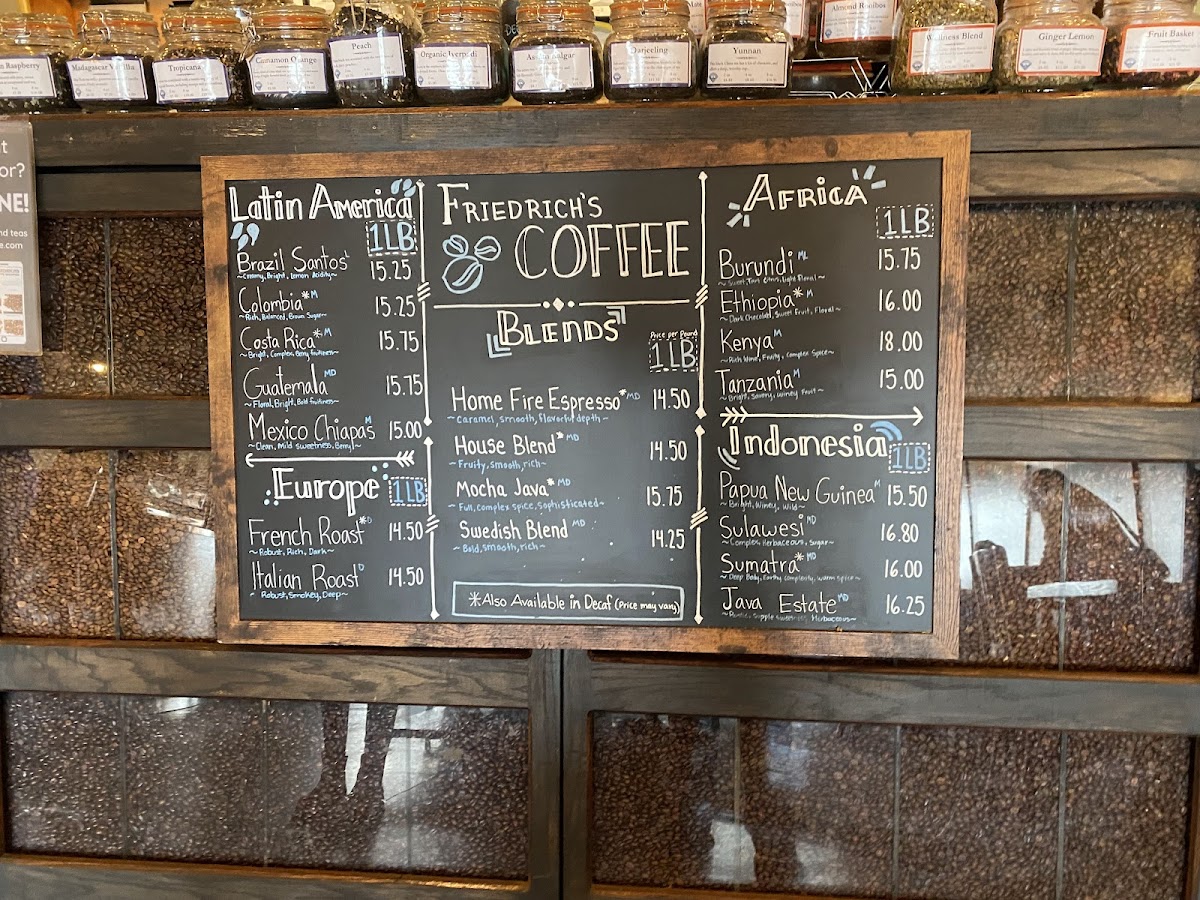 Raspberry
Madagascar Vanilla
Tropicana
Cinnamon Orange
Peach
Organic Iyerpadi
Darjeeling
Yunnan
Almond Rooibos
Wellness Blend
Ginger Lemon
Fruit Basket
Latin America
1LB
Brazil Santos L 15.25
~Creamy, Bright, Lemon Acidity~
Colombia* M 15.25
~Rich, Balanced, Brown Sugar~
Costa Rica* M 15.75
~Bright, Complex, Berry fruitiness~
Guatemala MD 15.75
~Floral, Bright, Bold fruitiness~
Mexico Chiapas M 15.00
~Clean, Mild Sweetness, Berry~
Europe 1LB
French Roast* D 14.50
~Robust, Rich, Dark~
Italian Roast D 14.50
~Robust, Smokey, Deep~
Friedrich's
COFFEE
Blends
Price per Pound
1LB
Home Fire Espresso* MD 14.50
~Caramel, smooth, flavorful depth~
House Blend* MD 14.50
~Fruity, smooth, rich~
Mocha Java* MD 15.75
~Full, complex spice, sophisticated~
Swedish Blend MD 14.25
~Bold, smooth, rich~
*Also Available in Decaf (Price may vary)
Africa
1LB
Burundi ML 15.75
~Sweet, Tart Citrus, Light Floral~
Ethiopia* M 16.00
~Dark Chocolate, Sweet Fruit, Floral~
Kenya M 18.00
~Rich Wine, Fruity, Complex Spice~
Tanzania M 15.00
~Bright, Savory, Winey Fruit~
Indonesia 1LB
Papua New Guinea M 15.50
~Bright, Winey, Wild~
Sulawesi MD 16.80
~Complex, Herbaceous, Sugar~
Sumatra* MD 16.00
~Deep Body, Earthy Complexity, Warm Spice~
Java Estate MD 16.25
~Rustic, Supple Sweetness, Herbaceous~